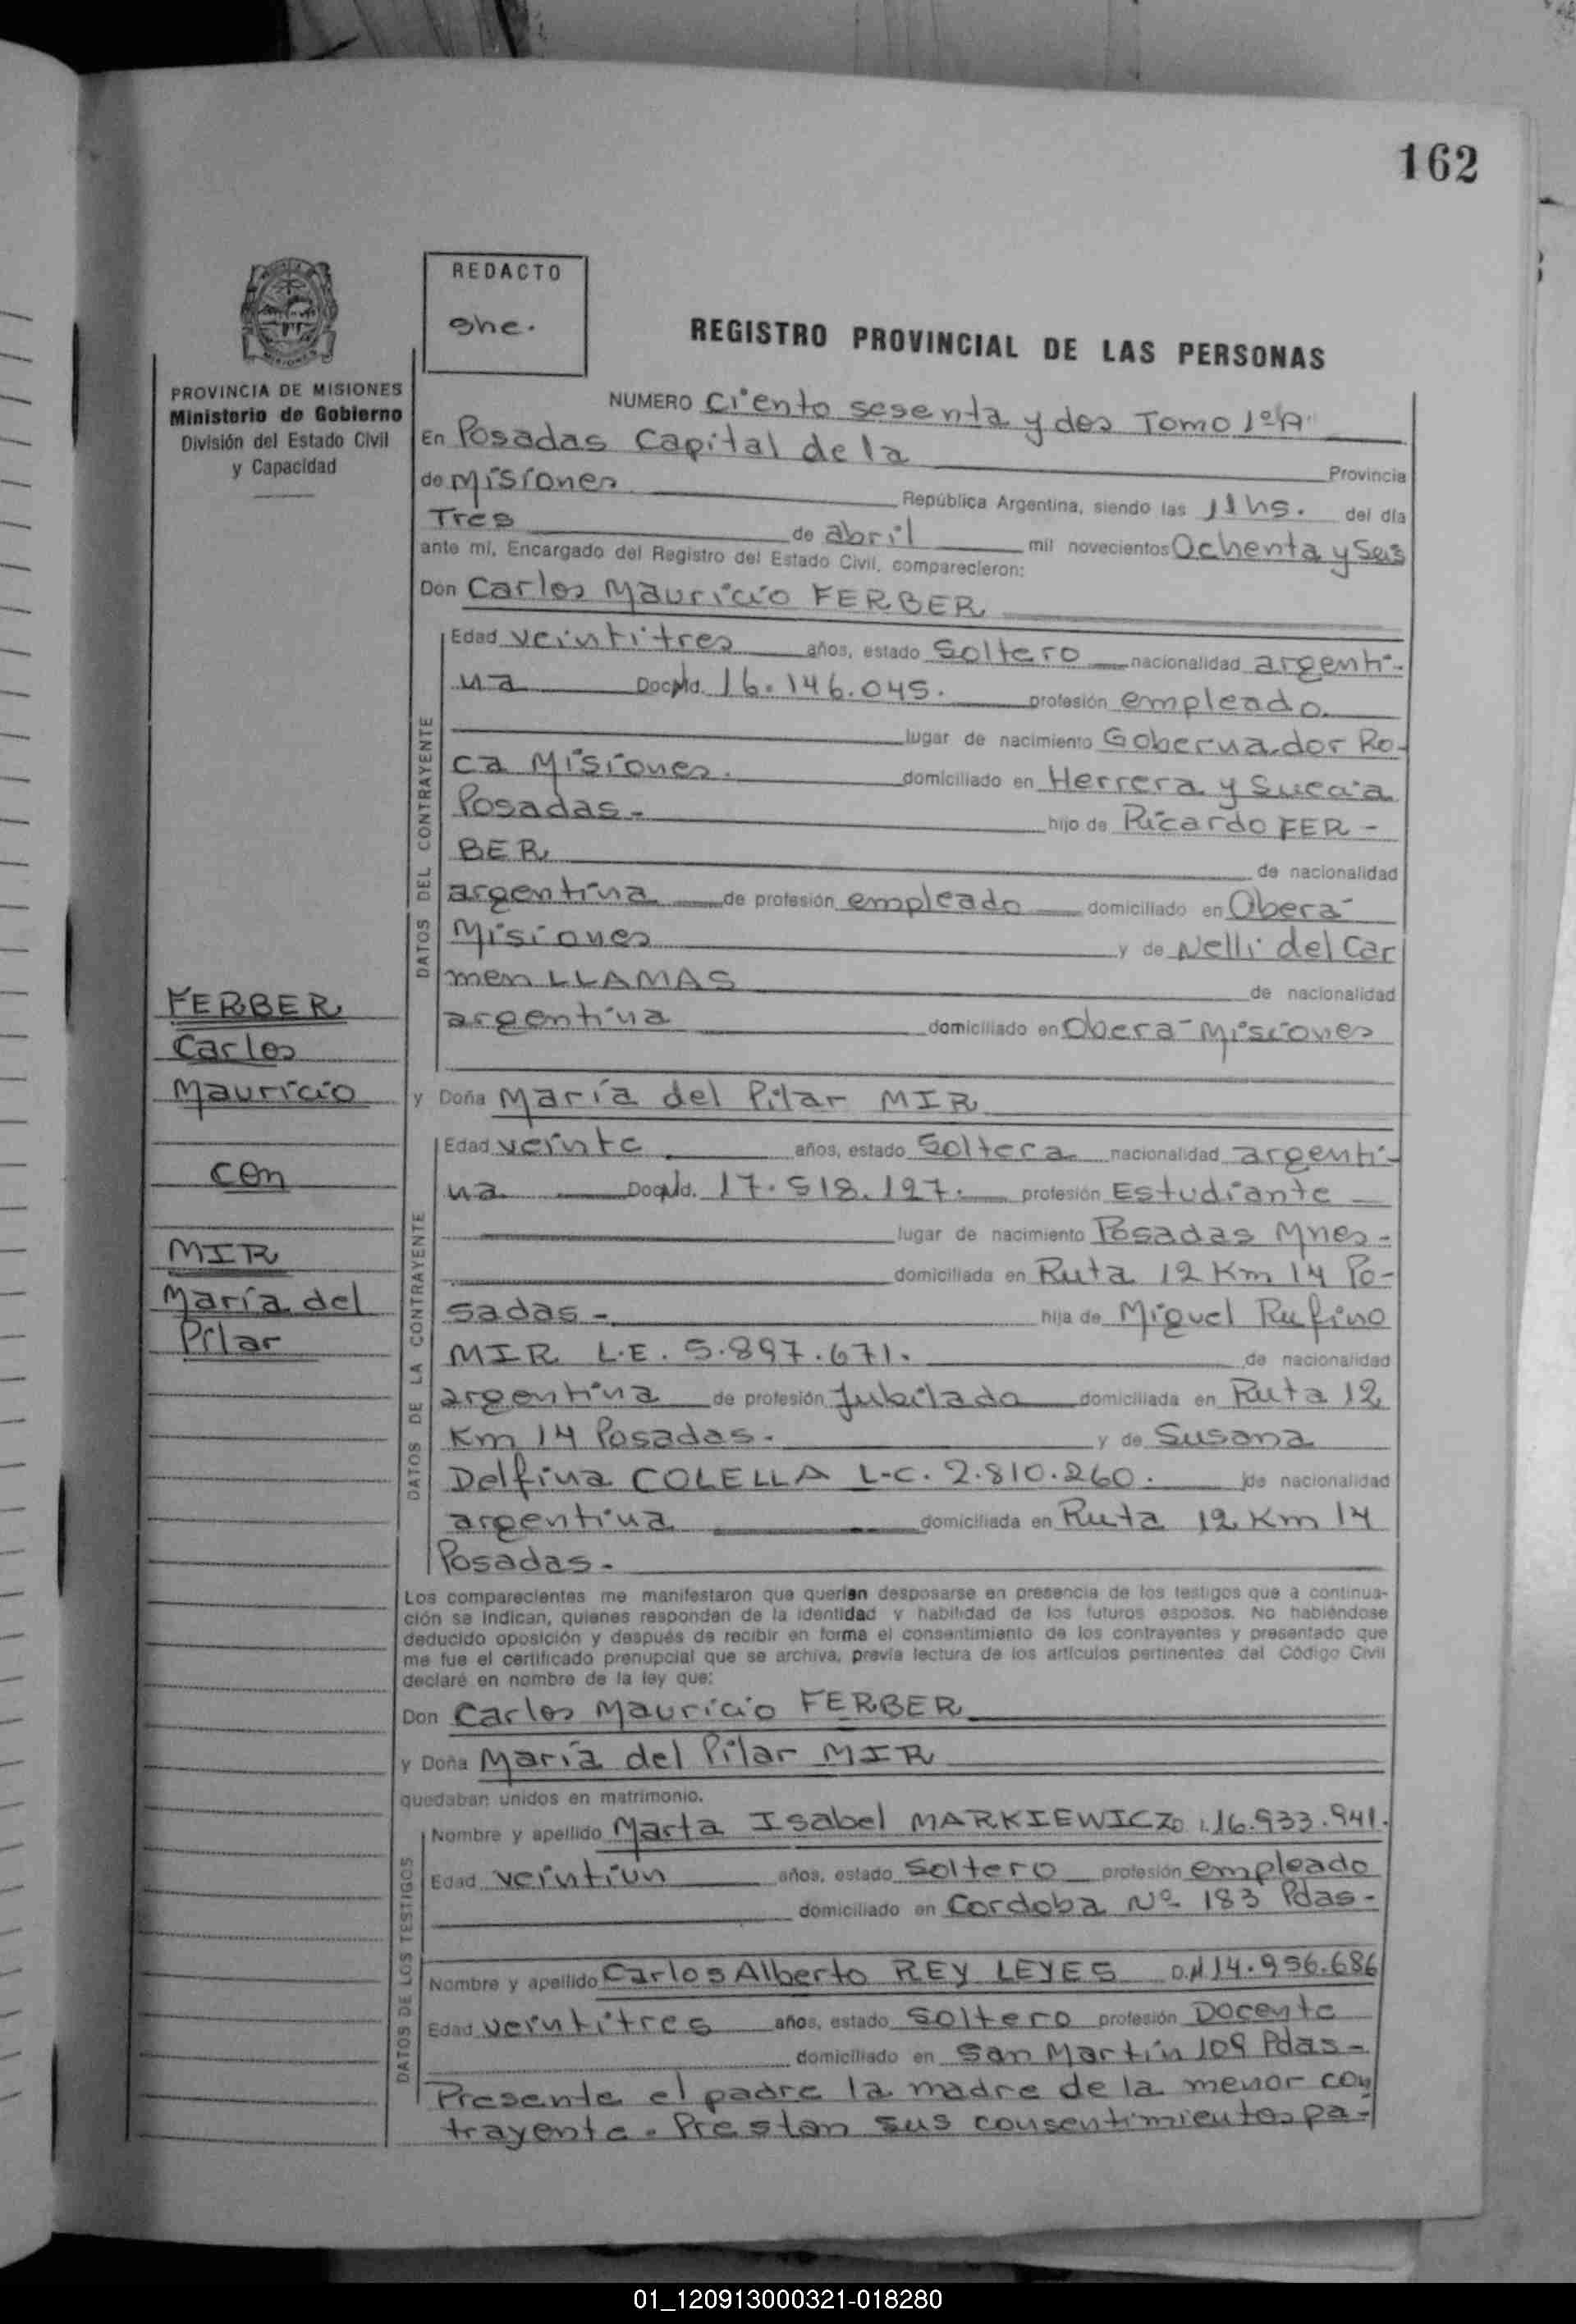 162
REDACTO
she.
REGISTRO PROVINCIAL DE LAS PERSONAS
PROVINCIA DE MISIONES
Ministerio de Gobierno
División del Estado Civil
y Capacidad
NUMERO Ciento sesenta y dos Tomo 1ºA
En Posadas Capital de la Provincia
de Misiones República Argentina, siendo las 11hs. del día
Tres de abril mil novecientos Ochenta y Seis
ante mí, Encargado del Registro del Estado Civil, comparecieron:
Don Carlos Mauricio FERBER
Edad veintitres años, estado Soltero nacionalidad argenti-
na Doc. Nd. 16.146.045. profesión empleado
lugar de nacimiento Gobernador Ro-
ca Misiones. domiciliado en Herrera y Suecia
Posadas- hijo de Ricardo FER-
BER de nacionalidad
argentina de profesión empleado domiciliado en Oberá
Misiones y de Nelli del Car
men LLAMAS de nacionalidad
argentina domiciliado en Oberá Misiones
DATOS DEL CONTRAYENTE
FERBER
Carlos
Mauricio
con
MIR
María del
Pilar
y Doña María del Pilar MIR
Edad veinte años, estado Soltera nacionalidad argenti-
na Doc. Nd. 17.518.127. profesión Estudiante
lugar de nacimiento Posadas Mnes-
domiciliada en Ruta 12 Km 14 Po-
sadas- hija de Miguel Rufino
MIR L.E. 5.897.671. de nacionalidad
argentina de profesión Jubilado domiciliada en Ruta 12
Km 14 Posadas. y de Susana
Delfina COLELLA L.C. 2.810.260. de nacionalidad
argentina domiciliada en Ruta 12 Km 14
Posadas-
DATOS DE LA CONTRAYENTE
Los comparecientes me manifestaron que querían desposarse en presencia de los testigos que a continua-
ción se indican, quienes responden de la identidad y habilidad de los futuros esposos. No habiéndose
deducido oposición y después de recibir en forma el consentimiento de los contrayentes y presentado que
me fue el certificado prenupcial que se archiva, previa lectura de los artículos pertinentes del Código Civil
declaré en nombre de la ley que:
Don Carlos Mauricio FERBER
y Doña María del Pilar MIR
quedaban unidos en matrimonio.
Nombre y apellido Marta Isabel MARKIEWICZ 16.933.941.
Edad veintiun años, estado Soltero profesión empleado
domiciliado en Cordoba Nº 183 Pdas-
Nombre y apellido Carlos Alberto REY LEYES 14.956.686
Edad veintitres años, estado Soltero profesión Docente
domiciliado en San Martín 109 Pdas-
DATOS DE LOS TESTIGOS
Presente el padre la madre de la menor con
trayente. Prestan sus consentimientos pa-
01_120913000321-018280